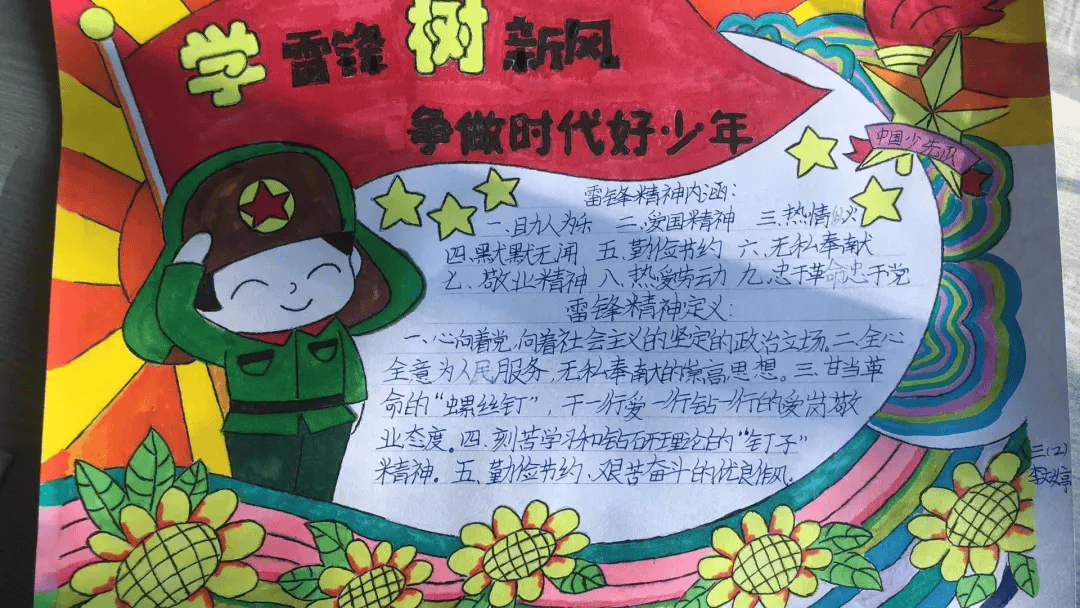 学雷锋树新风
争做时代好少年
中国少年队
雷锋精神内涵:
一.助人为乐 二.爱国精神 三.热情
四.默默无闻 五.勤俭节约 六.无私奉献
七.敬业精神 八.热爱劳动 九.忠于革命忠于党
雷锋精神定义:
一.心向着党,向着社会主义的坚定的政治立场.二.全心
全意为人民服务,无私奉献的崇高思想。三.甘当革
命的“螺丝钉”,干一行爱一行钻一行的爱岗敬
业态度。四.刻苦学习和钻研理论的“钉子”
精神。五.勤俭节约.艰苦奋斗的优良作风。
三(2)
李